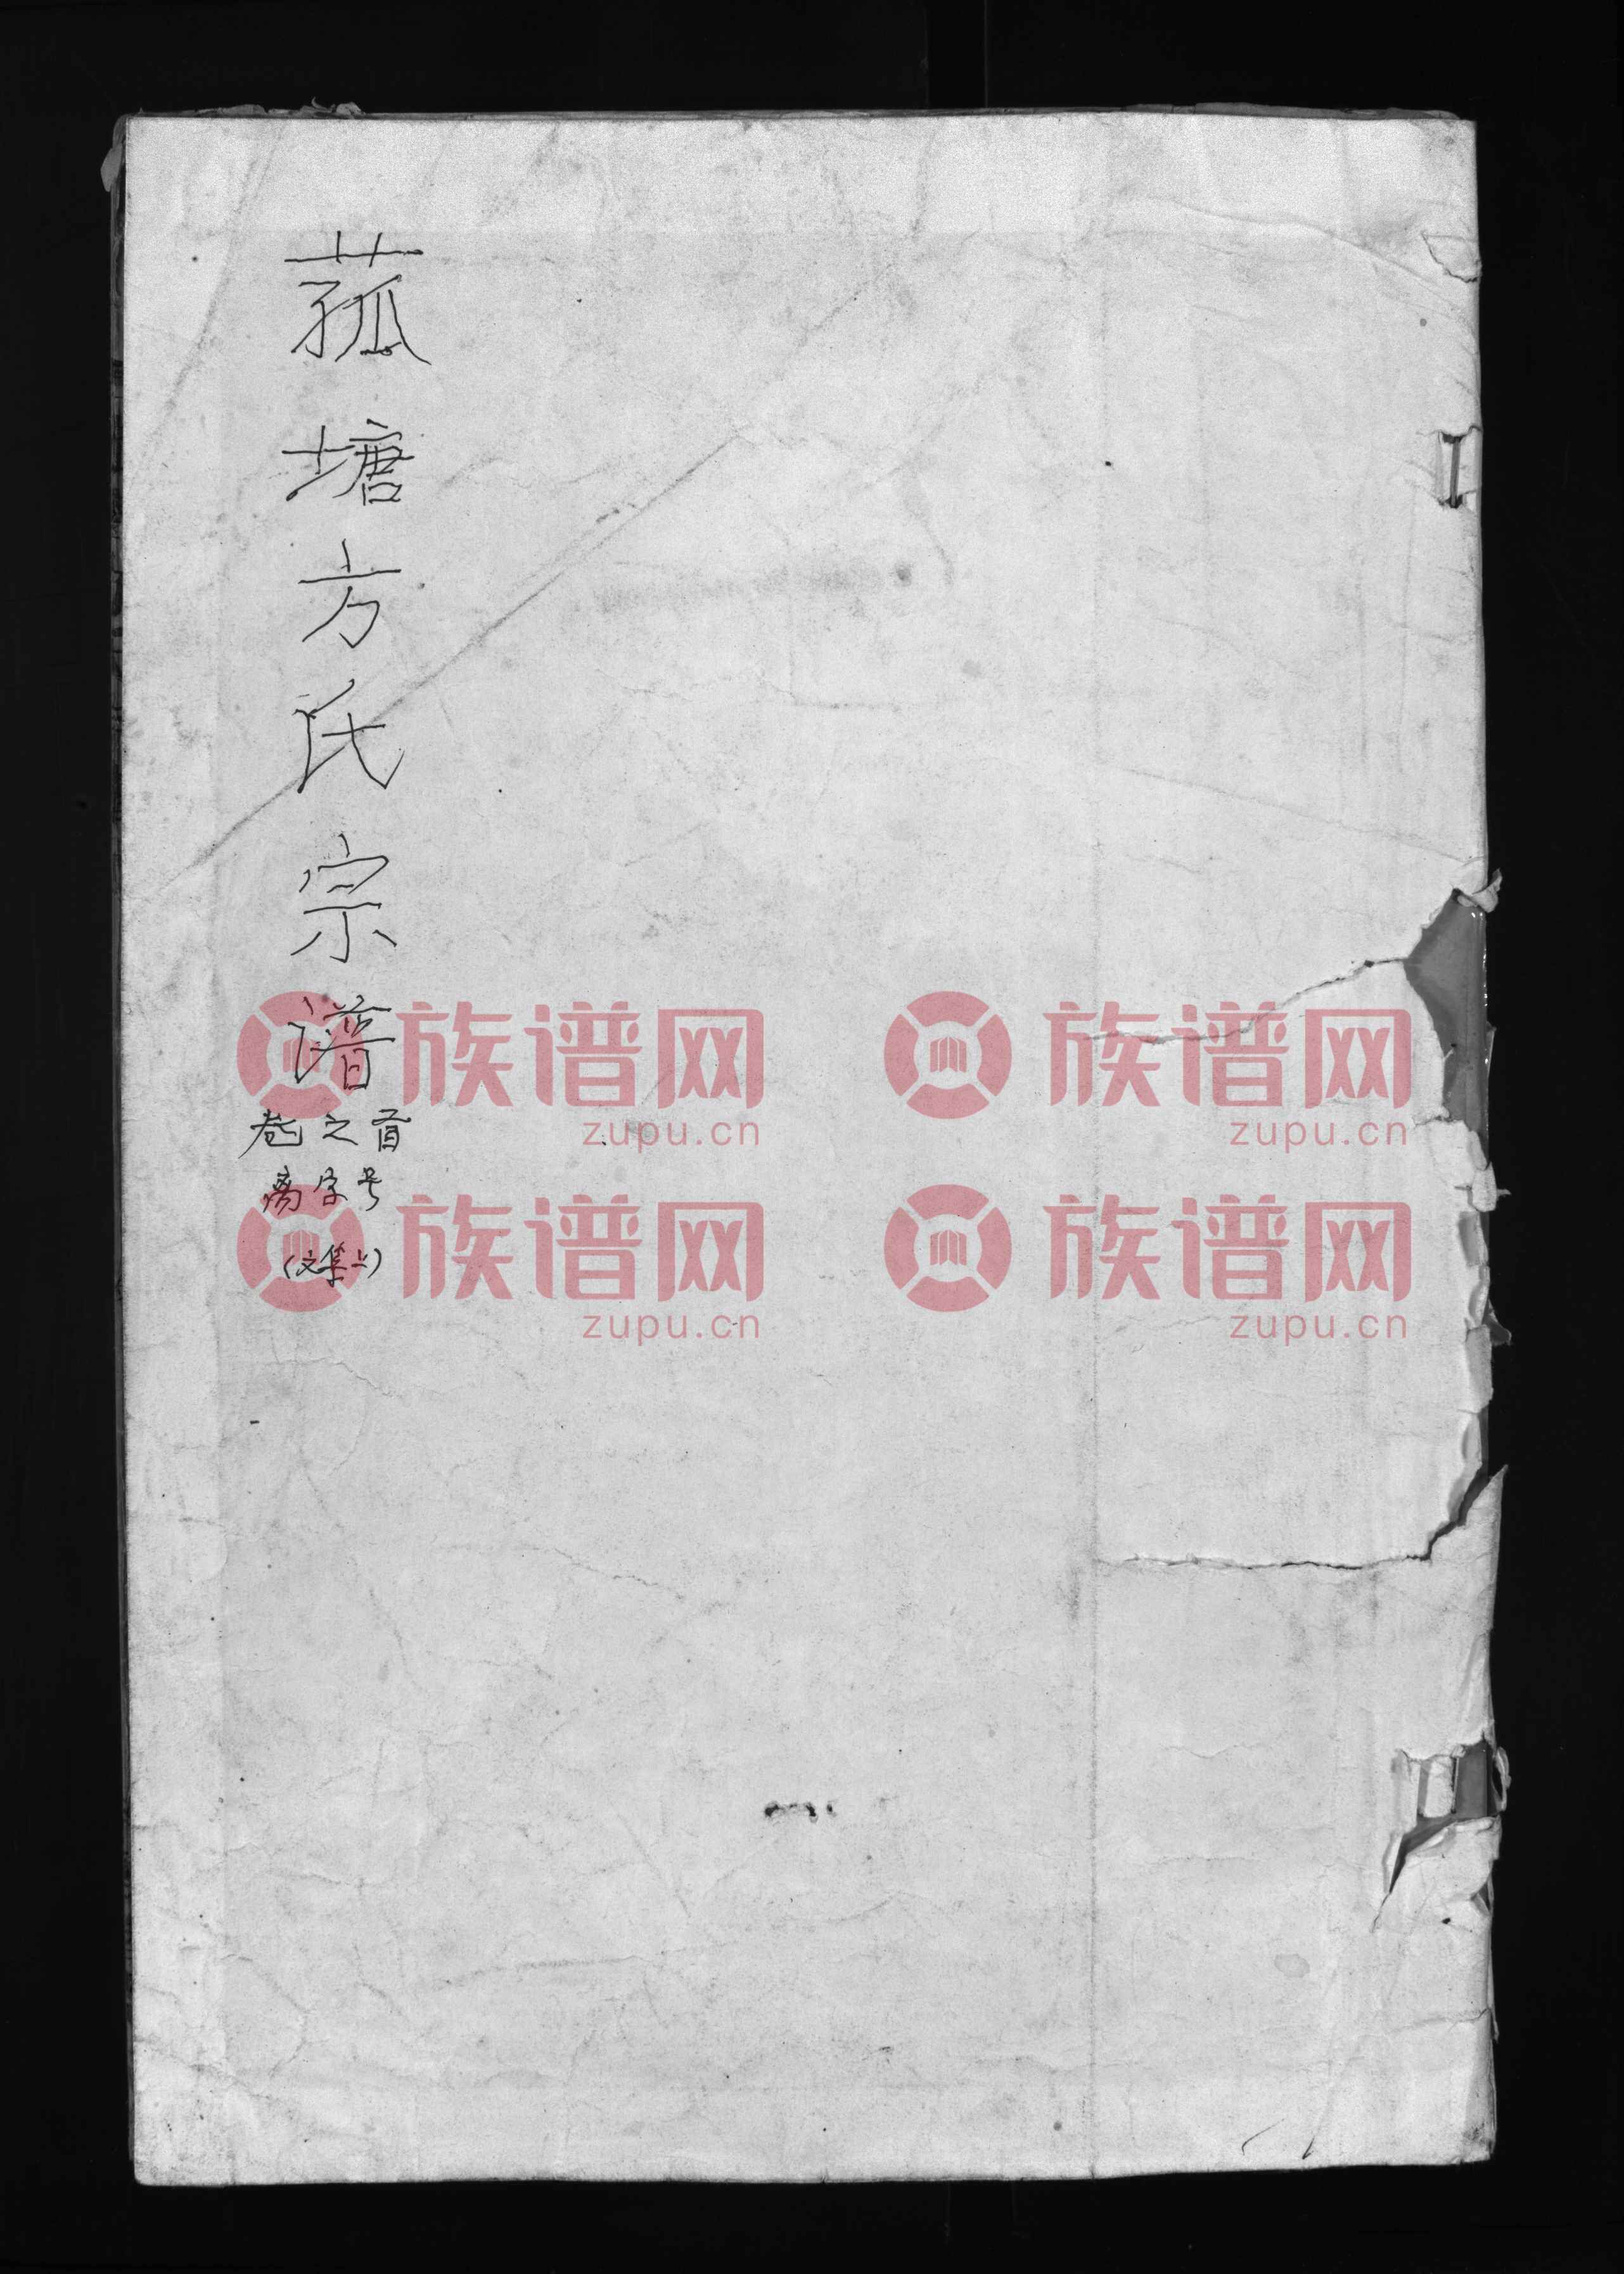 菰塘方氏宗谱
卷之首
离字号
(文集二)
族谱网 族谱网
zupu.cn zupu.cn
族谱网 族谱网
zupu.cn zupu.cn